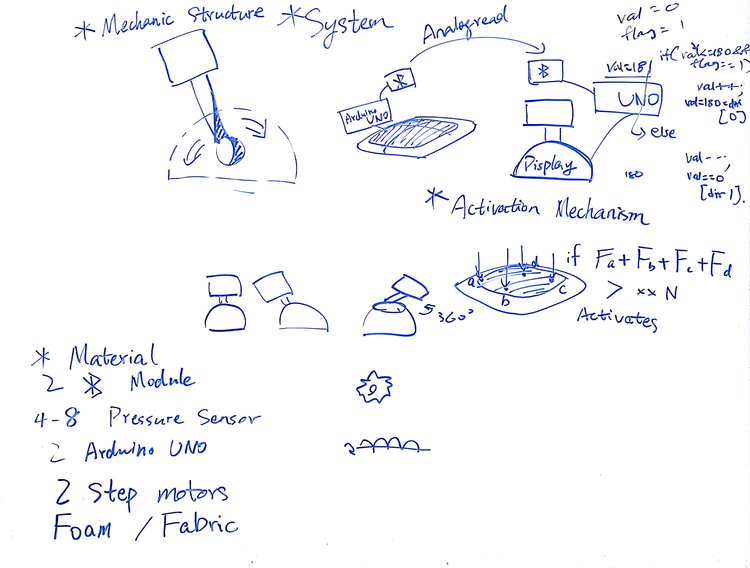 * Mechanic Structure
* System
Analogread
Arduino
UNO
UNO
Display
val = 0
flag = 1
val=181
val++;
else
180
val--;
val==0
[dir 1].
[0]
* Activation Mechanism
a
b
c
d
if Fa+Fb+Fc+Fd
> xx N
Activates
360°
* Material
2 Module
4-8 Pressure Sensor
2 Arduino UNO
2 Step motors
Foam / Fabric